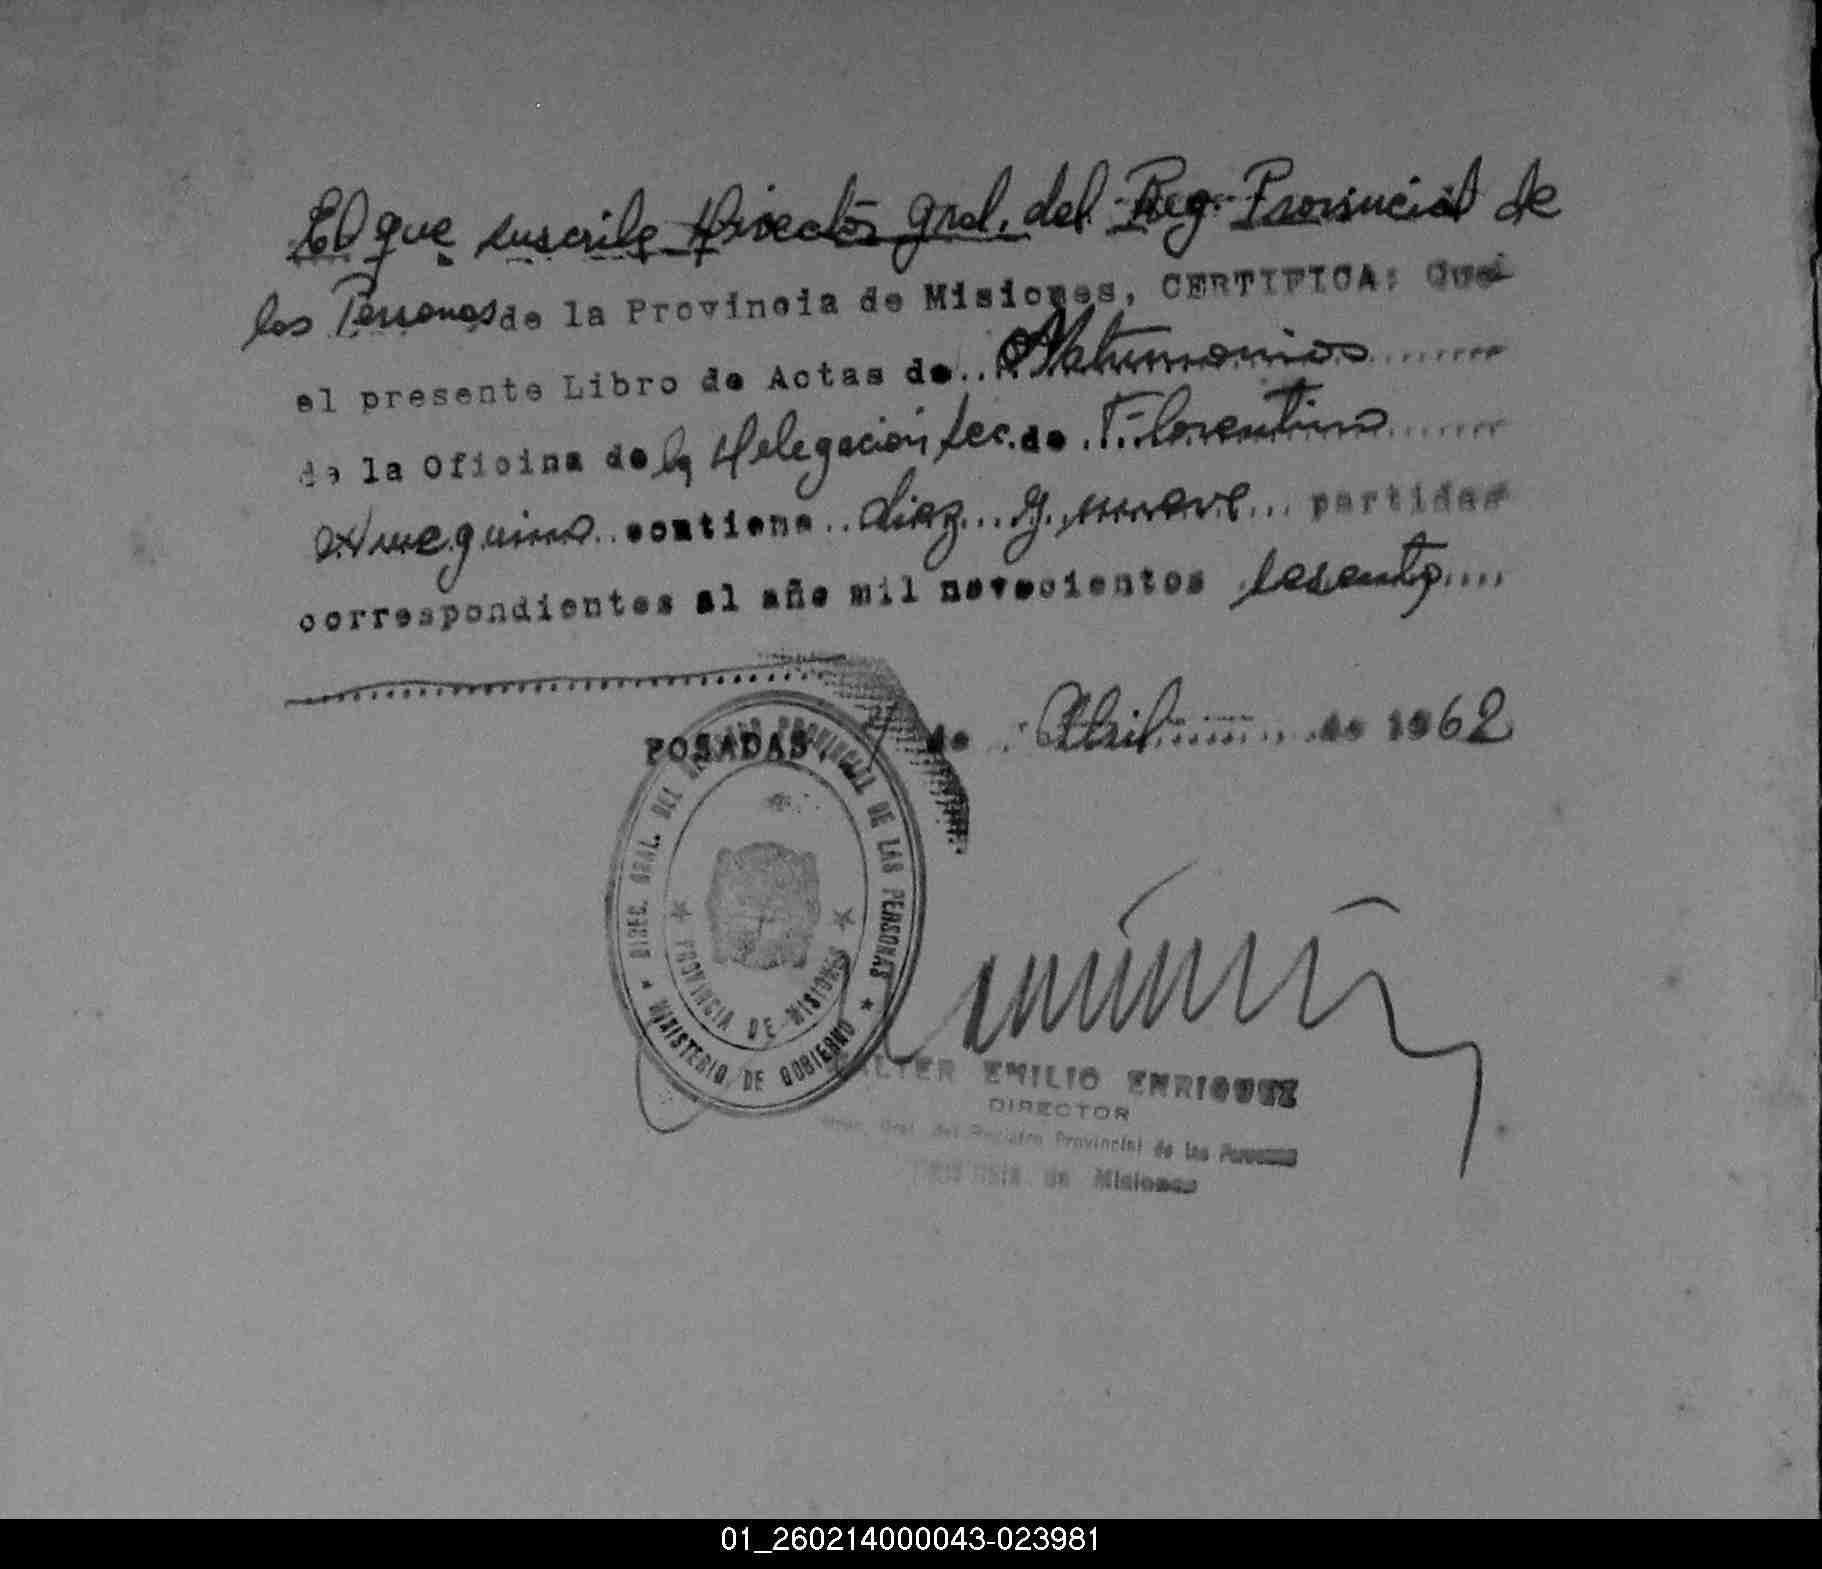 El que suscribe Director Gral. del Reg. Provincial de
las Personas de la Provincia de Misiones, CERTIFICA: Que
el presente Libro de Actas de.. Matrimonios ........
de la Oficina de la Delegación Sec. de . Florentino .......
Ameghino.. contiene.. diez... y. nueve... partidas
correspondientes al año mil novecientos sesenta....
POSADAS, 7 de .. Abril ........ de 1962
DIREC. GRAL. DEL REGISTRO PROVINCIAL DE LAS PERSONAS
★ MINISTERIO DE GOBIERNO ★
★ PROVINCIA DE MISIONES ★
WALTER EMILIO ENRIQUEZ
DIRECTOR
Direc. Gral. del Registro Provincial de las Personas
Provincia de Misiones
01_260214000043-023981